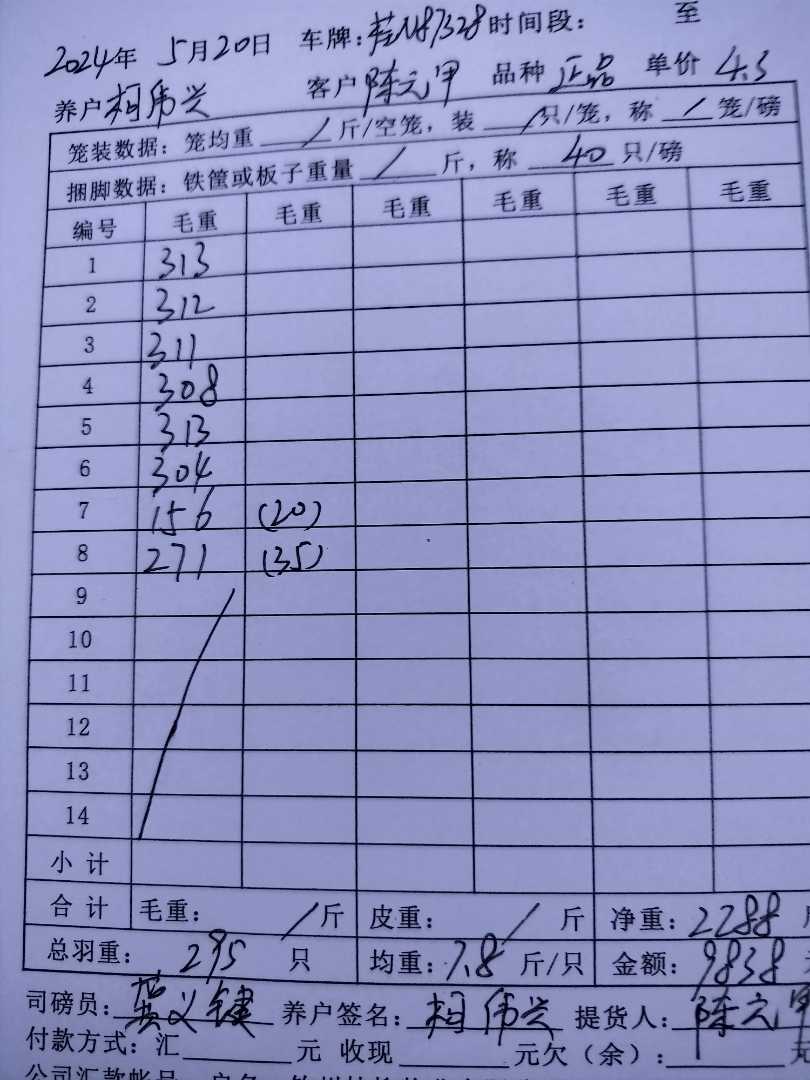 2024年 5月20日 车牌:桂N87328时间段: 至
养户柯伟兴 客户陈元甲 品种 正品 单价 4.3
笼装数据: 笼均重 / 斤/空笼, 装 / 只/笼, 称 / 笼/磅
捆脚数据: 铁筐或板子重量 / 斤, 称 40 只/磅
编号 毛重 毛重 毛重 毛重 毛重 毛重
1 313
2 312
3 311
4 308
5 313
6 304
7 156 (20)
8 271 (35)
9
10
11
12
13
14
小计
合计 毛重: / 斤 皮重: / 斤 净重: 2288
总羽重: 295 只 均重: 7.8 斤/只 金额: 9838
司磅员: 黄义健 养户签名: 柯伟兴 提货人: 陈元甲
付款方式: 汇 元 收现 元欠(余): 元